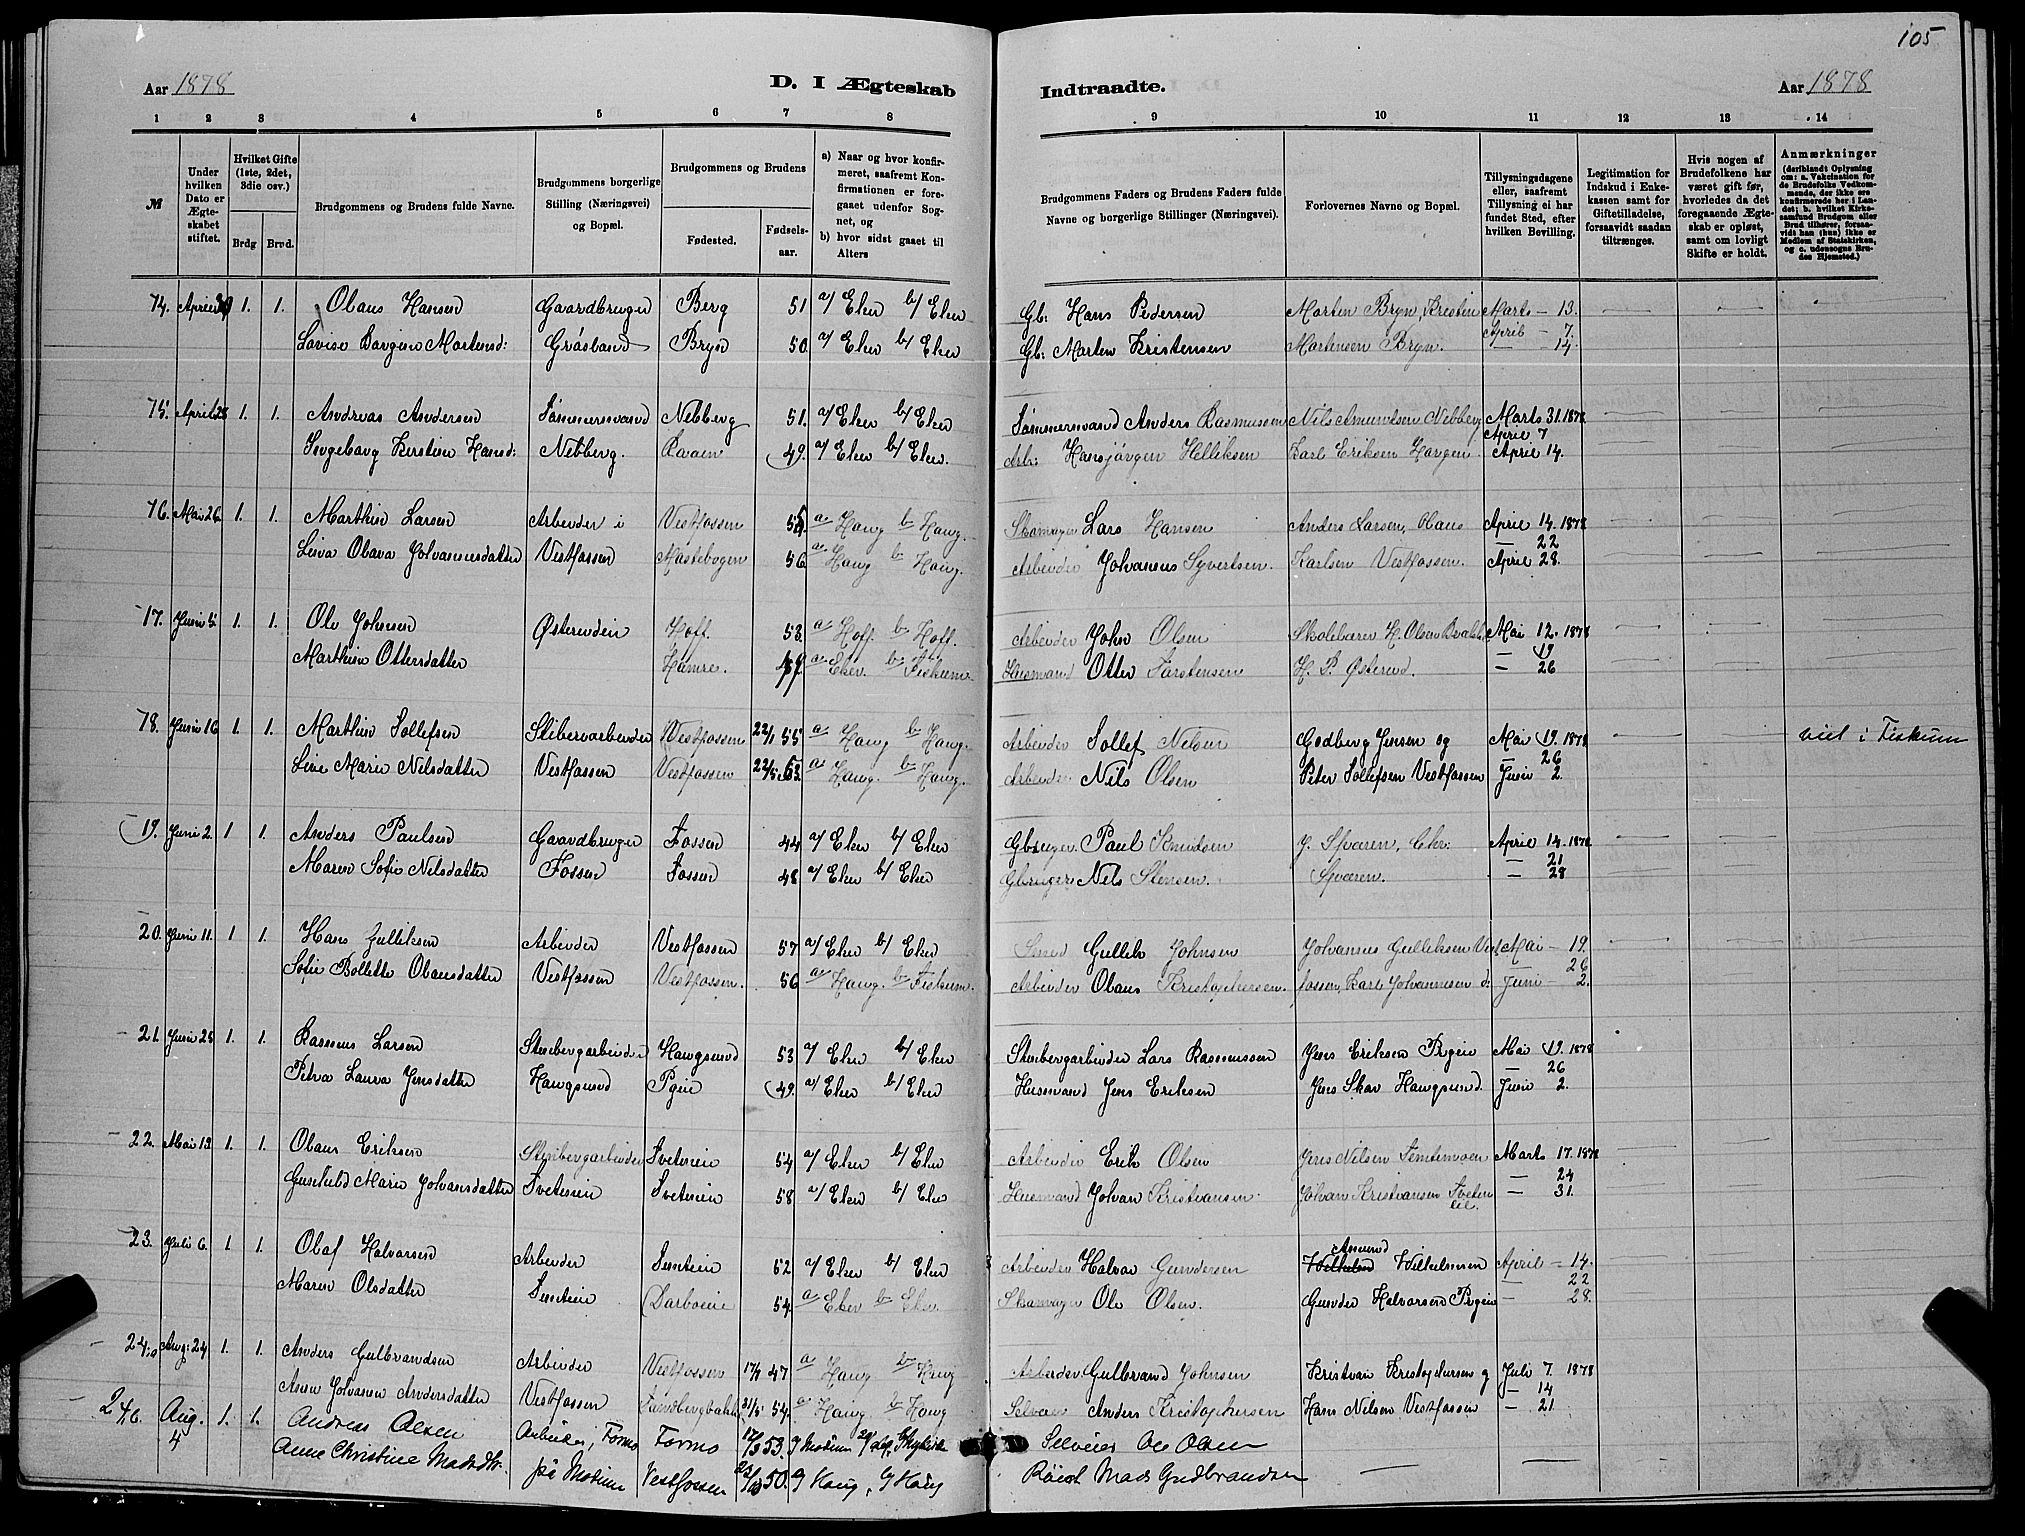 105
Aar 1878 D. I Ægteskab Indtraadte. Aar 1878
1 2 3 4 5 6 7 8 9 10 11 12 13 14
№
Under hvilken Dato er Ægteskabet stiftet.
Hvilket Gifte (1ste, 2det, 3die osv.)
Brdg Brud.
Brudgommens og Brudens fulde Navne.
Brudgommens borgerlige Stilling (Næringsvei) og Bopæl.
Brudgommens og Brudens
Fødested. Fødsels-aar.
a) Naar og hvor konfirmeret, saafremt Konfirmationen er foregaaet udenfor Sognet, og
b) hvor sidst gaaet til Alters
Brudgommens Faders og Brudens Faders fulde Navne og borgerlige Stillinger (Næringsvei).
Forlovernes Navne og Bopæl.
Tillysningsdagene eller, saafremt Tillysning ei har fundet Sted, efter hvilken Bevilling.
Legitimation for Indskud i Enkekassen samt for Giftetilladelse, forsaavidt saadan tiltrænges.
Hvis nogen af Brudefolkene har været gift før, hvorledes da det foregaaende Ægteskab er opløst, samt om lovligt Skifte er holdt.
Anmærkninger
(deriblandt Oplysning om: a. Vakcination for de Brudefolks Vedkommende, der ikke ere konfirmerede her i Landet; b. hvilket Kirkesamfund Brudgom eller Brud tilhører, forsaavidt han (hun) ikke er Medlem af Statskirken, og c. udensogns Brudes Hjemsted.)
14. April 1. 1. Olaus Hansen Gaardbruger Berg 51 a/ Eker b/ Eker Gb: Hans Pedersen Morten Bryn, Kristen Marts — 13.
Lovise Mortensd: Bryn 50 a/ Eker b/ Eker Gb: Morten Kristensen Mortensen Bryn. April — 7.
— 14.
15. April 28 1. 1. Andreas Andersen Tømmermand Nebberg 51. a/ Eker b/ Eker Tømmermand Anders Rasmussen Nils Amundsen Nebberg Marts 31. 1878
April 7
Ingeborg Kirstine Hansd: Nebberg. 49. a/ Eker b/ Eker. Arb: Hansjørgen Helliksen Karl Eriksen Horgen April 14.
16. Mai 26 1. 1. Marthin Larsen Arbeider i Vestfossen a Haug b Haug. Skomager Lars Hansen Anders Larsen, Olaus April 14. 1878
— 22
Lina Olava Johannesdatter Vestfossen 56 a Haug b Haug. Arbeider Johannes Syvertsen. Karlsen Vestfossen. April 28.
17. Juni 1. 1. Ole Johnsen Østereiden Hoff. 53. a Hoff. b Hoff. Arbeider John Olsen Skolelærer H. Olsen Mai 12. 1878
— 19
Marthine Ottersdatter Hamre. a Eker. b Fiskum. Husmand Otter Torstensen H. P. Østerud. — 26
18. Juni 16 1. 1. Marthin Tollefsen Sliberiarbeider Vestfossen 22/1 55 a Haug b Haug. Arbeider Tollef Nelsen Godberg Jensen og Mai 19. 1878 viet i Fiskum
— 26
Line Marie Nilsdatter Vestfossen Vestfossen 22/5 53. a Haug. b Haug. Arbeider Nils Olsen Peter Tollefsen Vestfossen Juni 2
19. Juni 2. 1 1. Anders Paulsen Gaardbruger Fossen 44 a/ Eker b/ Eker Gbruger. Paul Knudsen J. Sparen, Chr: April 14. 1878
— 21
Maren Sofie Nilsdatter Fossen Fossen 48 a/ Eker b/ Eker Gbruger Nils Stensen. Sparen. — 28
20. Juni 11. 1 1. Hans Gulliksen Arbeider Vestfossen 57 a/ Eker b/ Eker Smed Gullik Johnsen Johannes Gulliksen Vest Mai — 19.
— 26
Sofie Bollette Olausdatter Vestfossen Vestfossen. 56 a Haug. b Fiskum. Arbeider Olaus Kristophersen. fossen, Karl Johannesen d: Juni — 2.
21. Juni 25 1. 1. Rasmus Larsen Stenbergarbeider Haugsund 53 a/ Eker b/ Eker Stenbergarbeider Lars Rasmussen Jens Eriksen Mai 19. 1878
— 26
Petra Laura Jensdatter Haugsund 49. a/ Eker b/ Eker Husmand Jens Eriksen Jens Skar Haugsund. Juni 2.
22. Mai 1. 1. Olaus Eriksen Stenbergarbeider Tveteneie 54 a/ Eker b/ Eker Arbeider Erik Olsen Jens Nilsen Marts 17. 1878
— 24
Gunhild Marie Johansdatter Tveteneie Tveteneie 58 a/ Eker b/ Eker Husmand Johan Kristiansen. Johan Kristiansen Tveten — 31.
eie.
23. Juli 6. 1. 1. Olaf Halvorsen Arbeider 52 a/ Eker b/ Eker Arbeider Halvor Gundersen Wilhelmsen April — 14.
— 22
Maren Olsdatter 54. a Eker b Eker. Skomager Ole Olsen. Gunder Halvorsen — 28.
24. Aug: 24 1. 1. Anders Gulbrandsen Arbeider Vestfossen 17/7 47 a Haug b Haug Arbeider Gulbrand Johnsen Kristian Kristophersen og Juli 7. 1878
— 14
Anne Andersdatter Vestfossen 54. a Haug b Haug Anders Kristophersen Hans Nilsen Vestfossen — 21
24b. Aug. 4 1. 1. Andreas Olsen Arbeider, Formo Formo 53. Ole Olsen
Anne Christine Madsdtr. på Modum Vestfossen 50. a/ Haug, b/ Haug Mads Gudbrandsen — —